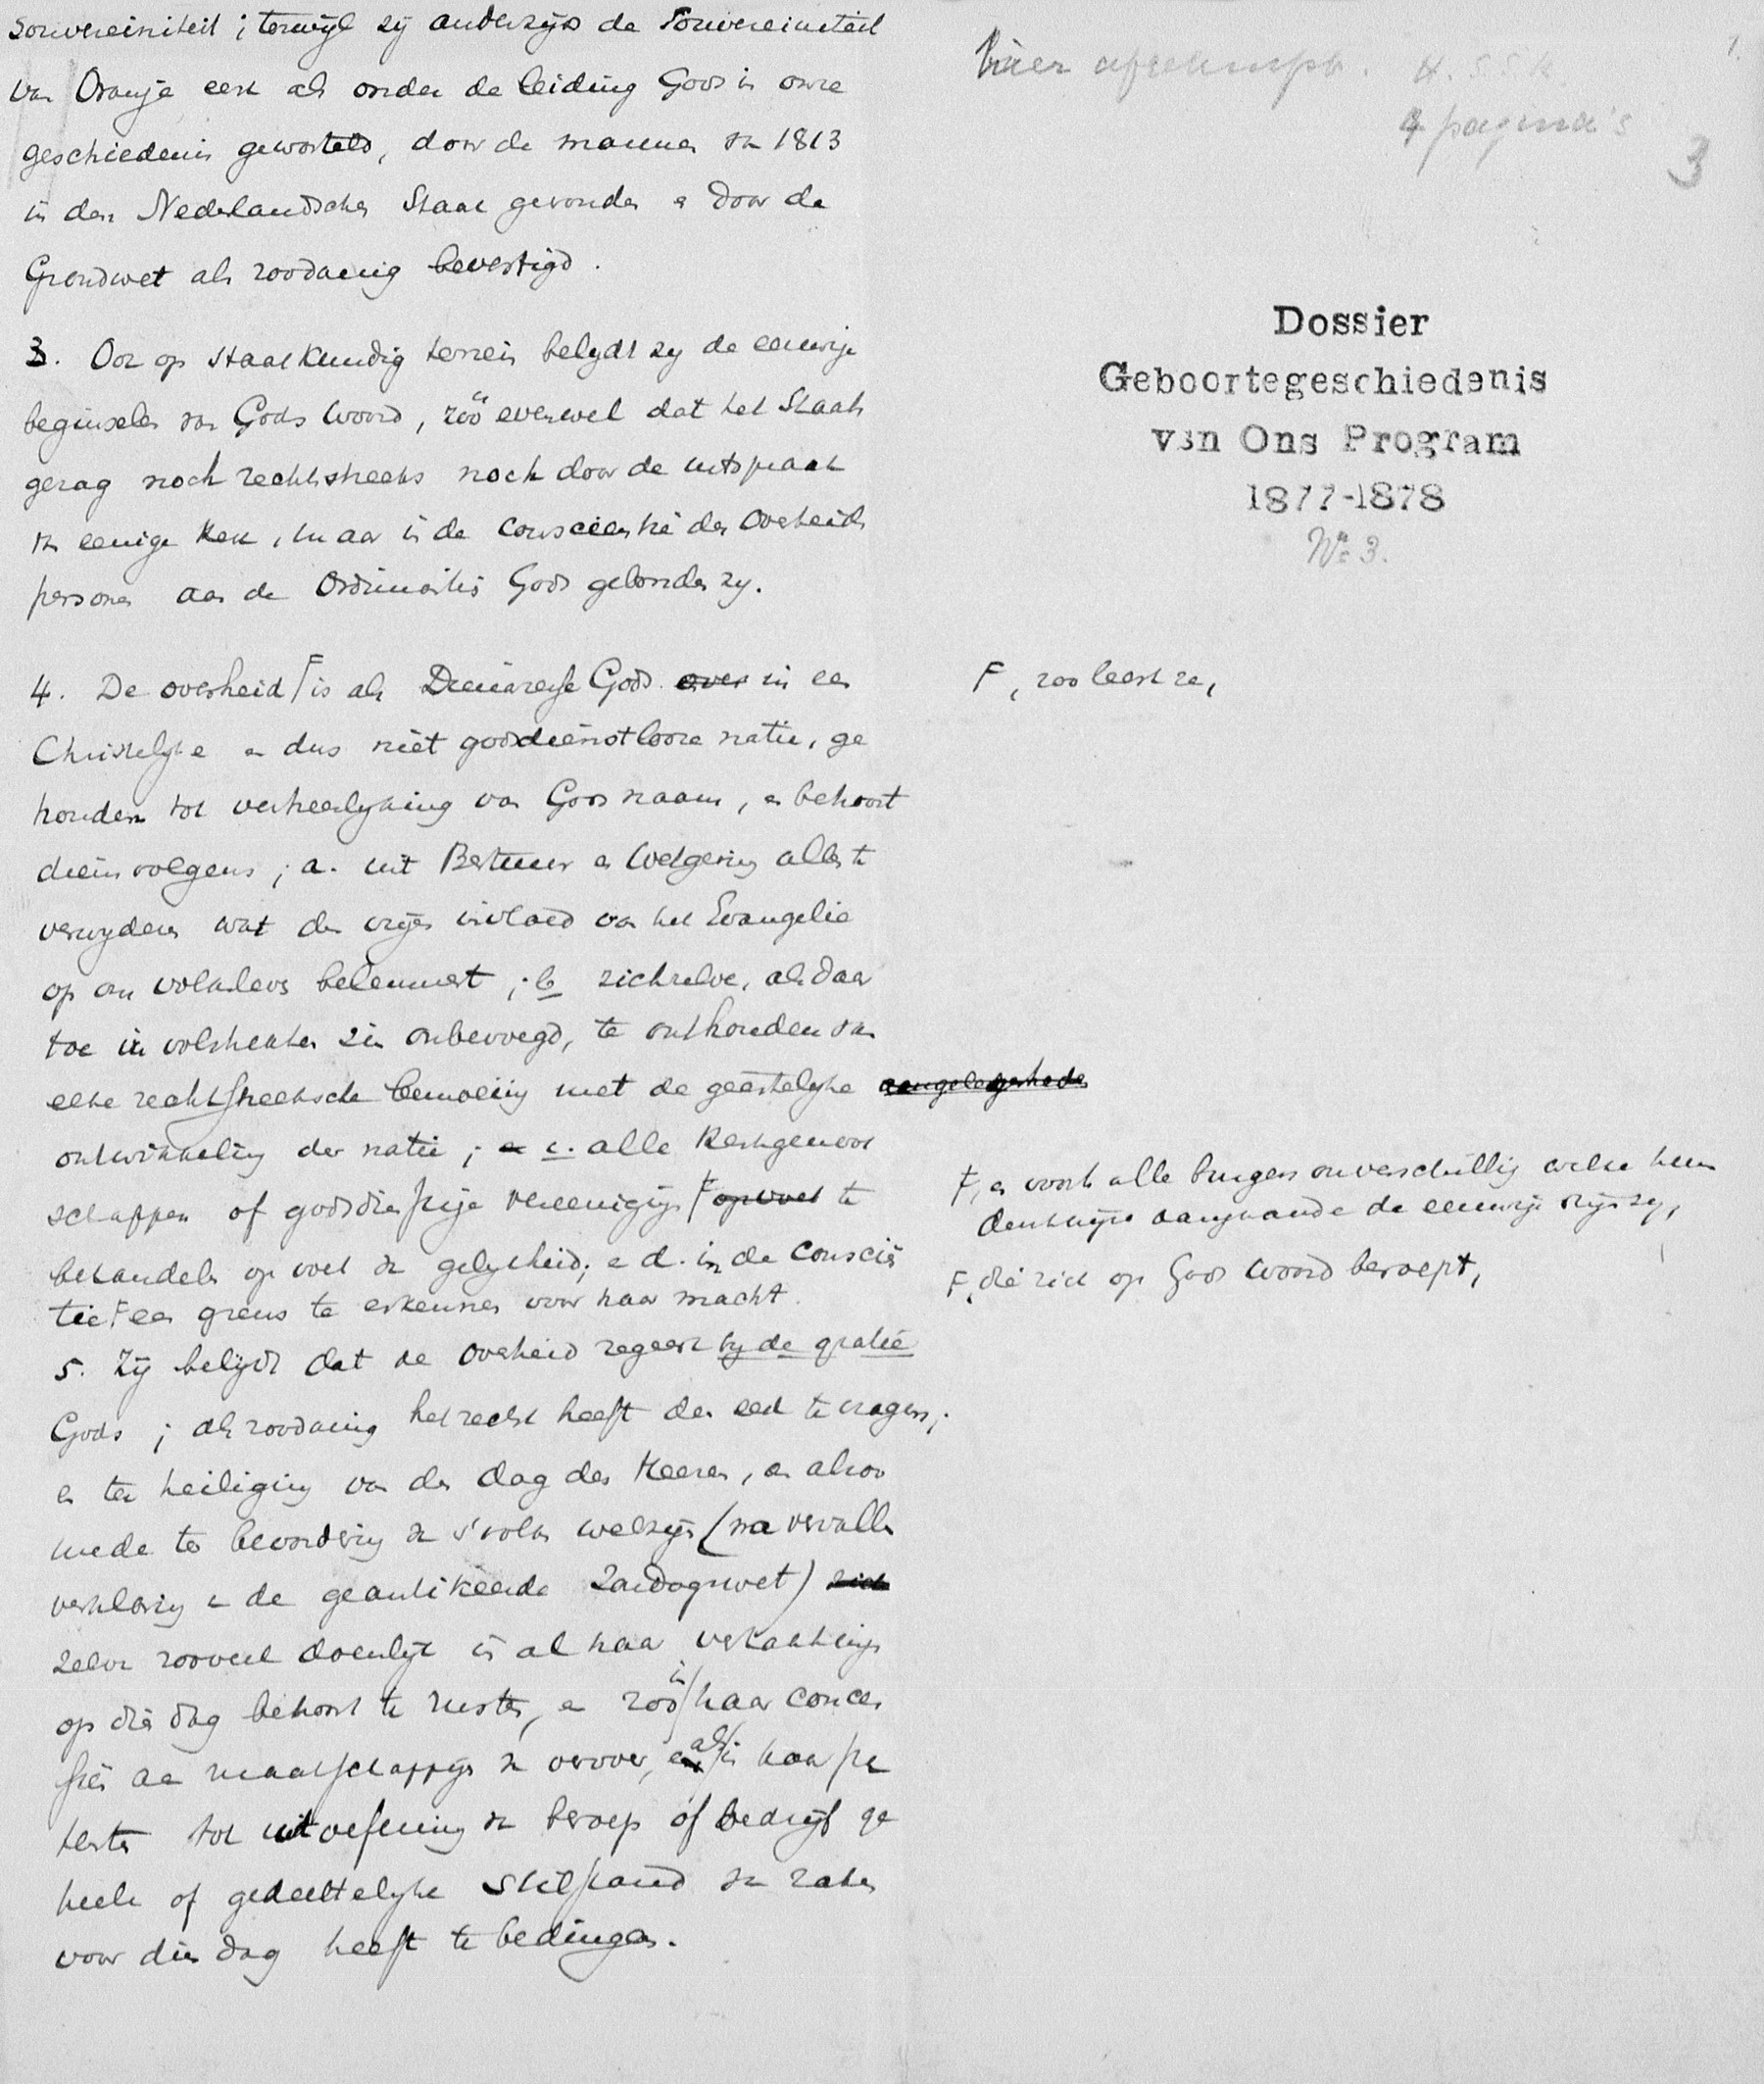 souvereiniteit; terwijl zij anderzijds de Souvereiniteit
van Oranje eert als onder de leiding Gods in onze
geschiedenis geworteld, door de mannen van 1813
in den Nederlandschen Staat gevonden en door de
Grondwet als zoodanig bevestigd.
3. Ook op staatkundig terrein belijdt zij de eeuwige
beginselen van Gods Woord, zóó evenwel dat het Staats
gezag noch rechtstreeks noch door de uitspraak
van eenige Kerk, maar in de conscientie der Overheids
personen aan de Ordinantiën Gods gebonden zij.
4. De overheid F is als Dienaresse Gods over in een
Christelijke en dus niet godsdienstlooze natie, ge
houden tot verheerlijking van Gods naam, en behoort
diensvolgens; a. uit Bestuur en Wetgeving alles te
verwijderen wat den vrijen invloed van het Evangelie
op ons volksleven belemmert; b zichzelve, als daar
toe in volstrekten zin onbevoegd, te onthouden van
elke rechtstreeksche bemoeiing met de geestelijke aangelegenheden
ontwikkeling der natie; en c. alle Kerkgenoot
schappen of godsdienstige vereenigingen F op voet te
behandelen op voet van gelijkheid; en d. in de conscien
tie F een grens te erkennen voor haar macht.
5. Zij belijdt dat de overheid regeert bij de gratie
Gods; als zoodanig het recht heeft den eed te vragen;
en ter heiliging van den dag des Heeren, en alzoo
mede ter bevordering van 's volks welzijn (na vervallen
verklaring van de geantikeerde Zondagswet) zich
zelve zooveel doenlijk in al haar vertakkingen
op dien dag behoort te rusten, en zóó in haar conces
siën aan maatschappijen van vervoer, en als in haar pa
tenten tot uitoefening van beroep of bedrijf ge
heele of gedeeltelijke stilstand van zaken
voor dien dag heeft te bedingen.
hier afgeknipt. H.S.S.K. 1.
4 pagina's
3
Dossier
Geboortegeschiedenis
van Ons Program
1877-1878
No 3.
F, zoo leert ze,
F, en voorts alle burgers onverschillig welke hun
denkwijze aangaande de eeuwige dingen zij,
F, die zich op Gods woord beroept,